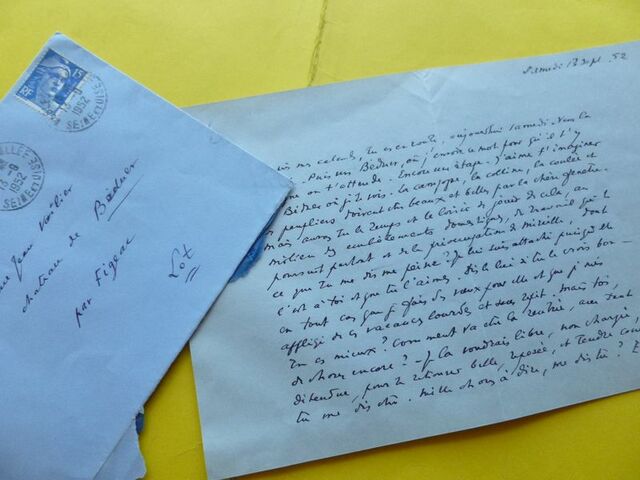 RF
15F
1952
SEINE ET OISE
1952
SEINE ET OISE
Jean
chateau de Béduer
par Figeac
Lot
Samedi 13 Sept. 52
tu es en route, aujourd'hui samedi vers la
Puis vers Béduer, où j'envoie ce mot pour qu'il s'y
on t'attende. Encore une étape. J'aime t'imaginer
Béduer où je te vois. La campagne, la colline, la coulée et
peupliers doivent être beaux et belles par la chère fenêtre.
mais auras-tu le temps et le loisir de jouir de cela, au
milieu des embêtements domestiques, du travail qui te
poursuit partout et de la préoccupation de Mireille, dont
ce que tu me dis me peine? Je lui suis attaché puisqu'elle
c'est à toi et que tu l'aimes. Dis-le lui si tu le crois bon
en tout cas que je fais des vœux pour elle et que je suis
affligé de ces vacances lourdes et sans répit. Mais toi,
Tu es mieux? Comment va être la rentrée, avec tant
de choses encore? Je la voudrais libre, non chargée,
détendue, pour te retrouver belle, reposée, et tendre comme
tu me dis être. Mille choses à dire, me dis-tu?